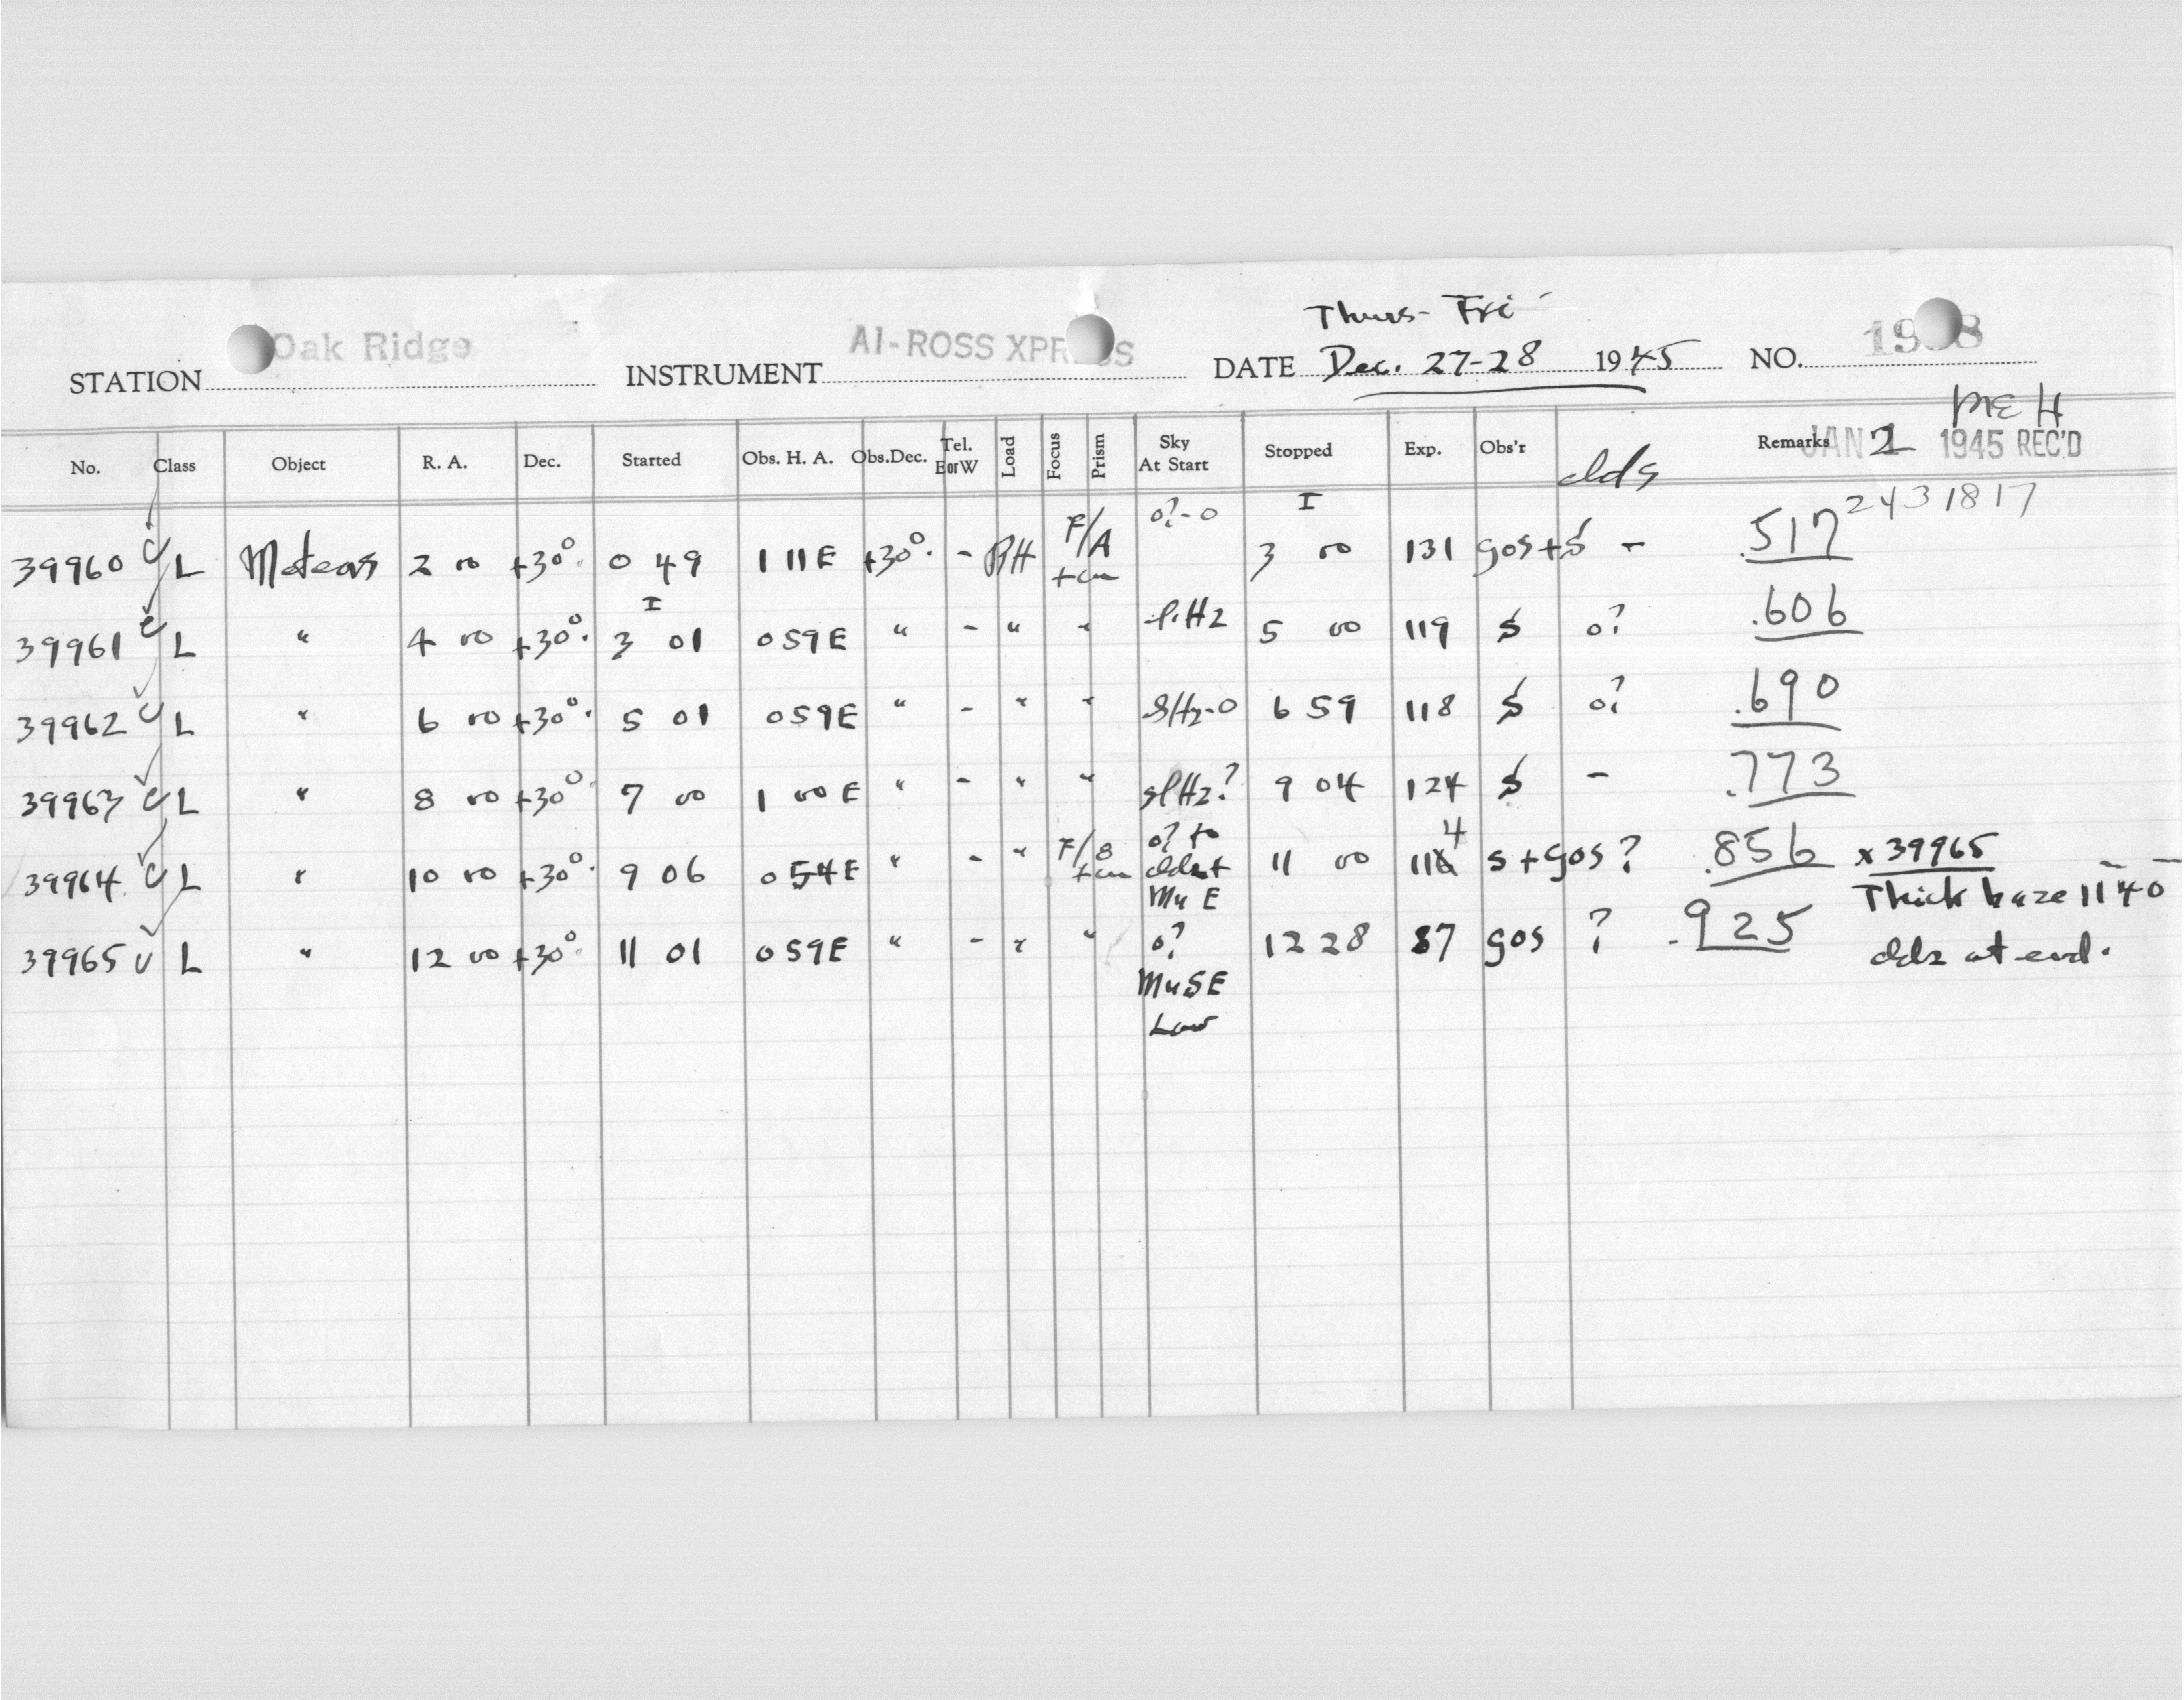 Thurs- Fri
STATION Oak Ridge INSTRUMENT AI-ROSS XPRESS DATE Dec. 27-28 1945 NO. 19 8
MEH
No. Class Object R. A. Dec. Started Obs. H. A. Obs.Dec. Tel. E or W Load Focus Prism Sky At Start Stopped Exp. Obs'r clds Remarks JAN 2 1945 REC'D
39960 L Meteors 2 00 +30° 0 49 1 11E +30° - F/A o?-o I 3 00 131 gos+S - .517 2431817
39961 L " 4 00 +30° I 3 01 0 59E " - " " 5 00 119 S o? .606
39962 L " 6 00 +30° 5 01 0 59E " - " " 6 59 118 S o? .690
39963 L " 8 00 +30° 7 00 1 00E " - " " slHz? 9 04 124 S - .773
39964 L " 10 00 +30° 9 06 0 54E " - " F/8 o? to clds+ Mn E 11 00 114 S+gos ? .856 x 39965
39965 L " 12 00 +30° 11 01 0 59E " - " " o? Mn SE Low 12 28 87 gos ? .925 Thick haze 11 40
clds at end.